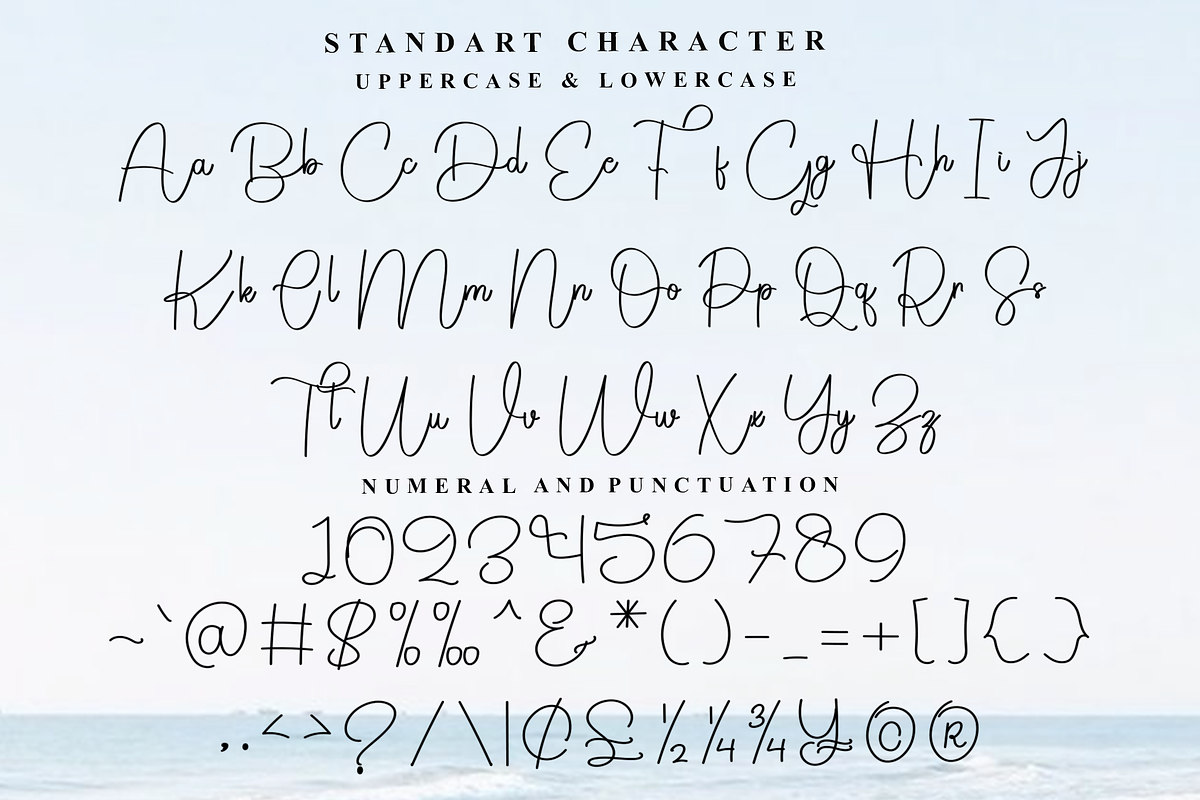 STANDART CHARACTER
UPPERCASE & LOWERCASE
Aa Bb Cc Dd Ee Ff Gg Hh Ii Jj
Kk Ll Mm Nn Oo Pp Qq Rr Ss
Tt Uu Vv Ww Xx Yy Zz
NUMERAL AND PUNCTUATION
1023456789
~`@#$%‰^&*()-_=+[]{}
,.<>?/\|¢£½¼¾¥©®